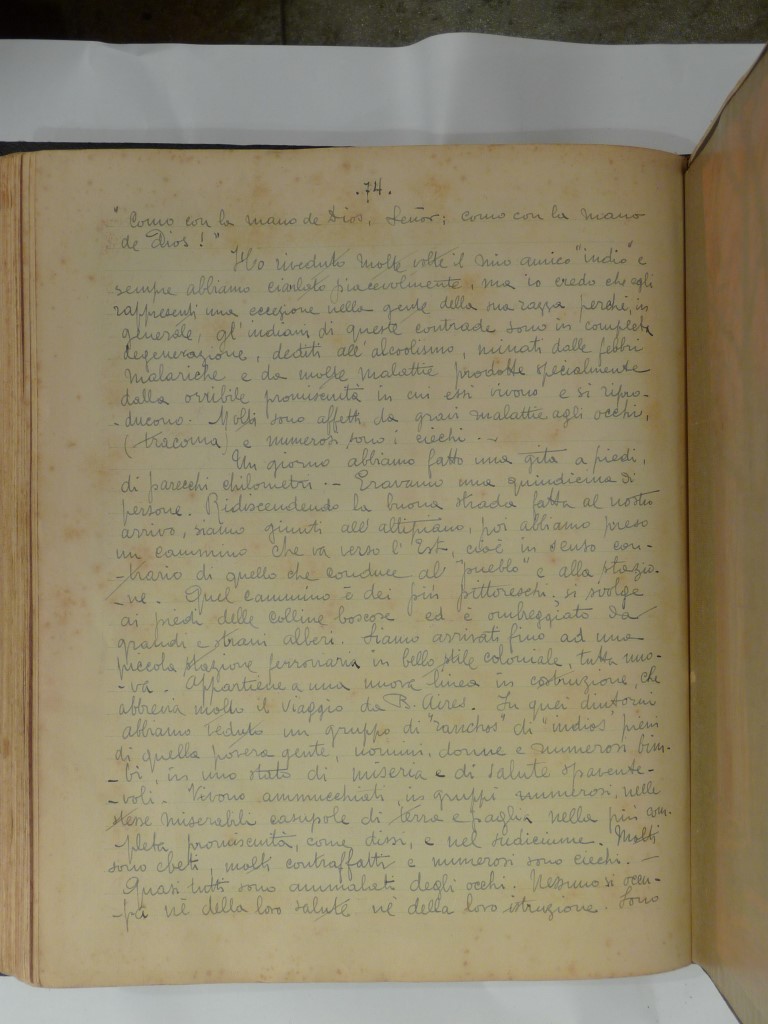 .74.
"Como con la mano de Dios, Señor; como con la mano
de Dios!"
Ho riveduto molte volte il mio amico "indio" e
sempre abbiamo ciarlato piacevolmente, ma io credo che egli
rappresenti una eccezione nella gente della sua razza perché, in
generale, gl'indiani di queste contrade sono in completa
degenerazione, dediti all'alcoolismo, minati dalle febbri
malariche e da molte malattie prodotte specialmente
dalla orribile promiscuità in cui essi vivono e si ripro-
-ducono. Molti sono affetti da gravi malattie agli occhi,
(tracoma) e numerosi sono i ciechi. -
Un giorno abbiamo fatto una gita a piedi,
di parecchi chilometri. - Eravamo una quindicina di
persone. Ridiscendendo la buona strada fatta al nostro
arrivo, siamo giunti all'altipiano, poi abbiamo preso
un cammino che va verso l'Est, cioè in senso con-
-trario di quello che conduce al "pueblo" e alla stazio-
-ne. Quel cammino è dei più pittoreschi: si svolge
ai piedi delle colline boscose ed è ombreggiato da
grandi e strani alberi. Siamo arrivati fino ad una
piccola stazione ferroviaria in bello stile coloniale, tutta nuo-
-va. Appartiene a una nuova linea in costruzione, che
abbrevia molto il viaggio da B. Aires. In quei dintorni
abbiamo veduto un gruppo di "ranchos" di "indios" pieni
di quella povera gente, uomini, donne e numerosi bim-
-bi, in uno stato di miseria e di salute spavente-
-voli. Vivono ammucchiati, in gruppi numerosi, nelle
stesse miserabili casupole di terra e paglia nella più com-
-pleta promiscuità, come dissi, e nel sudiciume. Molti
sono ebeti, molti contraffatti e numerosi sono ciechi. -
Quasi tutti sono ammalati degli occhi. Nessuno si occu-
-pa nè della loro salute nè della loro istruzione. Sono